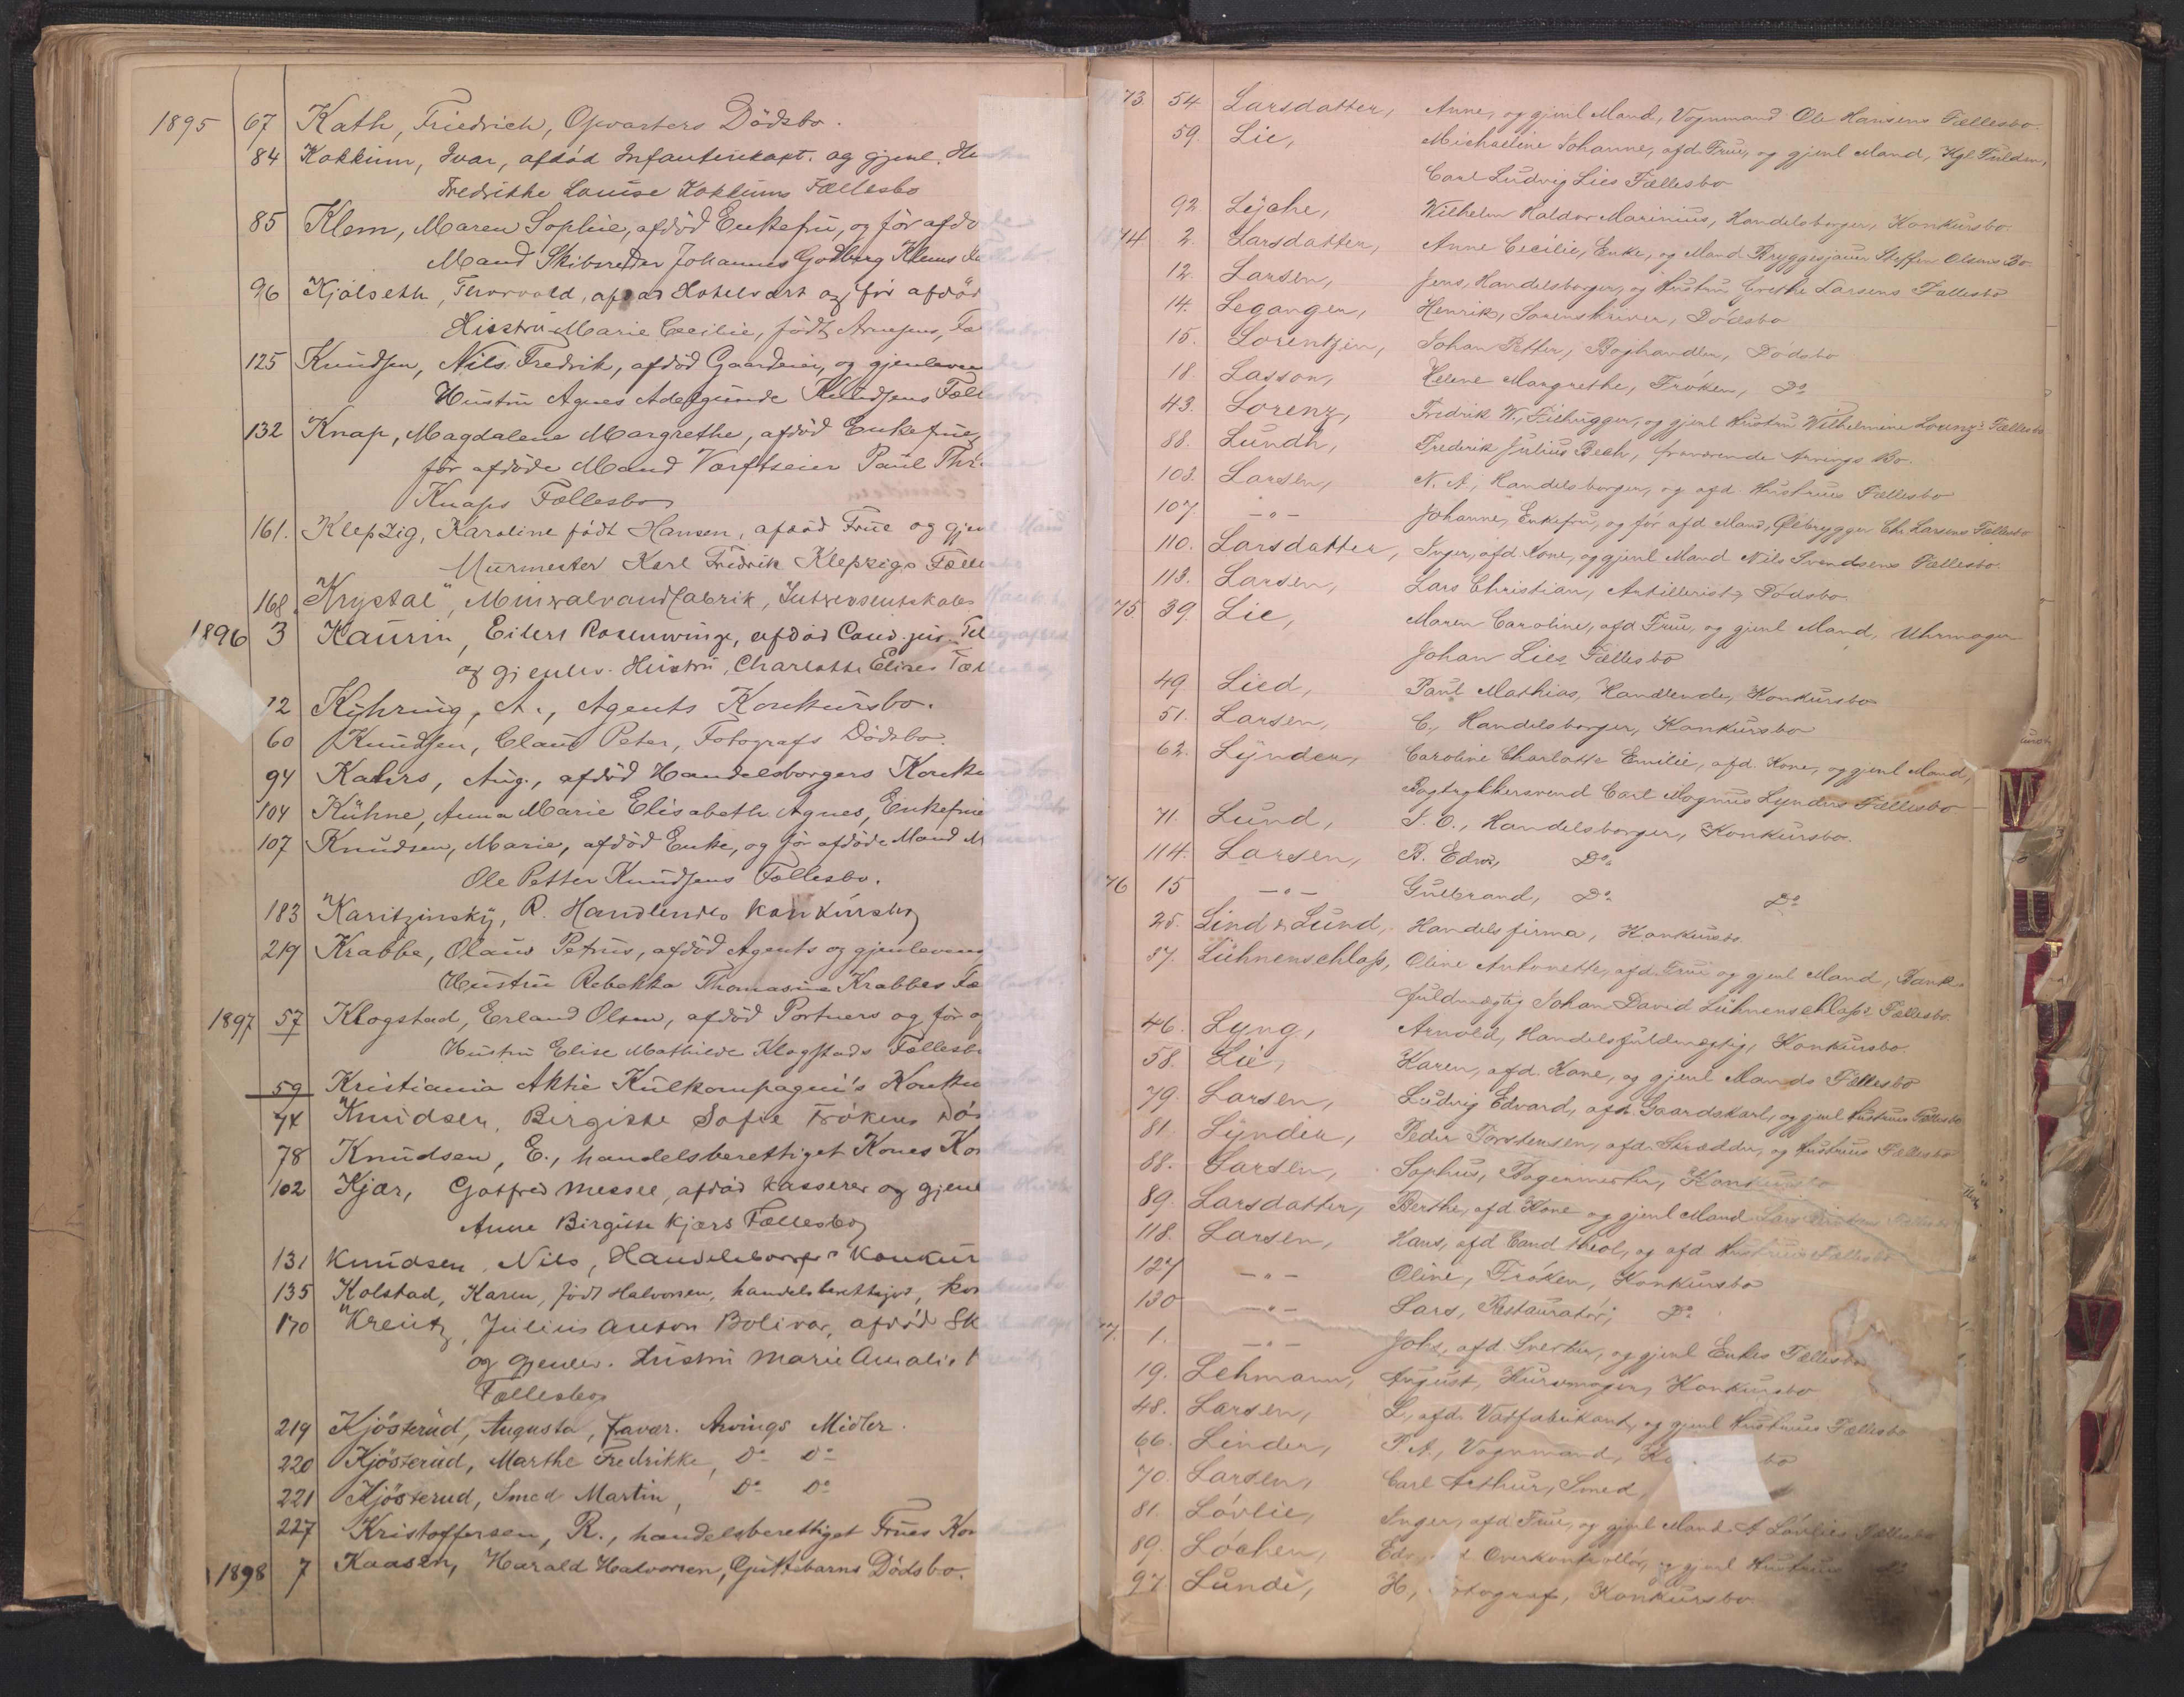 1895 67 Kath, Friedrich, Opvarters Dödsbo.
84 Kokkim, Ivar, afdöd Infanterikapt. og gjenl. Hustru
Fredrikke Louise Kokkims Fællesbo
85 Klem, Maren Sophie, afdöd Enkefru, og för afdöde
Mand Skibsreder Johannes Godberg Klems Fællesbo
96 Kjölseth, Thorvald, afdöd Hotelvært og för afdöd
Hustru Marie Cecilie, födt Arnesens, Fællesbo
125 Knudsen, Nils Fredrik, afdöd Gaardeier, og gjenlevende
Hustru Agnes Adelgunde Knudsens Fællesbo
132 Knap, Magdalene Margrethe, afdöd Enkefrue, og
för afdöde Mand Værftseier Paul Thr.
Knaps Fællesbo
161. Klepzig, Karoline födt Hansen, afdöd Frue og gjenl. Mand
Murmester Karl Fredrik Klepzigs Fællesbo
168. "Krystal", Mineralvandfabrik, Interessentskabs
1896 3 Kaurin, Eilert Rosenvinge, afdöd Cand. jur.
og gjenlev. Hustru, Charlotte Elises Fællesbo
12 Kühring, A., Agents Konkursbo.
60 Knudsen, Claus Peter, Fotografs Dödsbo.
94 Kahrs, Aug., afdöd Handelsborgers Konkursbo
104 Kühne, Anna Marie Elisabeth Agnes, Enkefrue Dödsbo
107 Knudsen, Marie, afdöd Enke, og för afdöde Mand
Ole Petter Knudsens Fællesbo.
183 Karitzinsky, R. Handlendes Konkursbo
219 Krabbe, Olaus Petrus, afdöd Agents og gjenlevende
Hustru Rebekka Thomasine Krabbes Fællesbo
1897 57 Klogstad, Erland Olsen, afdöd Portners og för
Hustru Elise Mathilde Klogstads Fællesbo
59 Kristiania Aktie Kulkompagni's Konkursbo
74 Knudsen, Birgitte Sofie Frökens Dödsbo
78 Knudsen, E., handelsberettiget Kones Konkursbo
102 Kjær, Gotfred Messel, afdöd Kasserer og gjenl. Hustru
Anne Birgitte Kjærs Fællesbo
131 Knudsen, Nils, Handelsborgers Konkursbo
135 Kolstad, Karen, födt Halvorsen, handelsberettiget, Konkursbo
170 Kreutz, Julius Anton Bolivar, afdöd
og gjenlev. Hustru Marie Amalie Kreutz
Fællesbo
219 Kjösterud, Augusta, fravær. Arvings Midler.
220 Kjösterud, Marthe Fredrikke, Do Do
221 Kjösterud, Smed Martin, Do Do
227 Kristoffersen, R., handelsberettiget Frues Konkursbo
1898 7 Kaasen, Harald Halvorsen, Guttebarns Dödsbo.
73 54 Larsdatter, Anne, og gjenl Mand, Vognmand Ole Hansens Fællesbo.
59. Lie, Michaeline Johanne, afd. Frue, og gjenl Mand, Kgl Fuldm,
Carl Ludvig Lies Fællesbo
92 Lyche, Wilhelm Haldor Marinius, Handelsborger, Konkursbo.
74 2. Larsdatter, Anne Cecilie, Enke, og Mand Bryggesjauer Steffen Olsens Bo
12. Larsen, Jens, Handelsborger, og Hustru Grethe Larsens Fællesbo
14. Leganger, Henrik, Sorenskriver, Dödsbo
15. Lorentzen, Johan Petter, Boghandler, Dödsbo
18. Lasson, Helene Margrethe, Fröken, Do
43. Lorenz, Fredrik W., Filhugger, og gjenl Hustru Wilhelmine Lorenz's Fællesbo
88. Lundh, Frederik Julius Bech, fraværende Arvings Bo.
103. Larsen, N. A., Handelsborger, og afd. Hustrues Fællesbo
107. —"— Johanne, Enkefru, og för afd Mand, Ölbrygger Chr. Larsens Fællesbo
110. Larsdatter, Inger, afd Kone, og gjenl Mand Nils Svendsens Fællesbo.
113. Larsen, Lars Christian, Artillerist, Dödsbo
75. 39. Lie, Maren Caroline, afd Frue, og gjenl Mand, Uhrmager
Johan Lies Fællesbo
49. Lied, Paul Mathias, Handlende, Konkursbo
51. Larsen, C., Handelsborger, Konkursbo
62. Lynder, Caroline Charlotte Emilie, afd. Kone, og gjenl Mand,
Bogtrykkersvend Carl Magnus Lynders Fællesbo
71. Lund, J. O., Handelsborger, Konkursbo.
114. Larsen, B. Edv., Do
76 15 —"— Gulbrand, Do Do
25. Lind & Lund, Handelsfirma, Konkursbo.
37. Lühnenschlass, Oline Antonette, afd. Frue og gjenl Mand, Bank-
fuldmægtig Johan David Lühnenschlass's Fællesbo.
46. Lyng, Arnold, Handelsfuldmægtig, Konkursbo.
58. Lie, Karen, afd. Kone, og gjenl Mands Fællesbo
79. Larsen, Ludvig Edvard, afd. Gaardskarl, og gjenl Hustrues Fællesbo
81. Lynder, Peder Torstensen, afd. Skrædder, og Hustrues Fællesbo
88. Larsen, Sophus, Bagermester, Konkursbo
89. Larsdatter, Berthe, afd. Kone og gjenl Mand
118. Larsen, Hans, afd Cand theol, og afd Hustrues Fællesbo
127 —"— Oline, Fröken, Konkursbo
130 —"— Lars, Restauratör, Do
77. 1. —"— Johs, afd. Snedker, og gjenl Enkes Fællesbo
19. Lehmann, August, Kurvmager, Konkursbo
48. Larsen, L, afd. Vatfabrikant, og gjenl Hustrues Fællesbo
66. Linder, P A, Vognmand,
70. Larsen, Carl Arthur, Smed,
81. Lövlie, Inger, afd Frue, og gjenl Mand A Lövlies Fællesbo
89. Löchen, Edv, Overkontrollör, og gjenl Hustrues Do
97 Lunde, H, Fotograf, Konkursbo